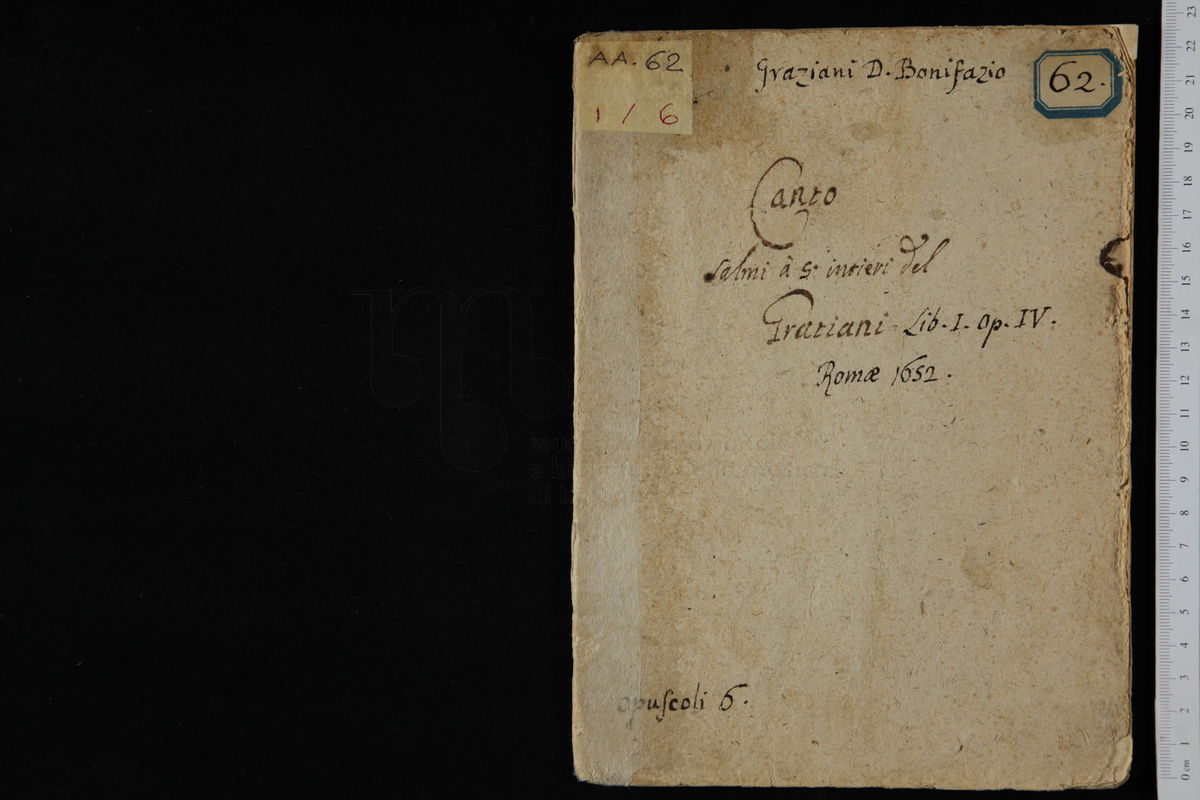 AA. 62
1 / 6
Graziani D. Bonifazio
62.
Canto
Salmi à 5. intieri del
Gratiani Lib. I. Op. IV.
Romæ 1652.
opuscoli 6.
0 cm 1 2 3 4 5 6 7 8 9 10 11 12 13 14 15 16 17 18 19 20 21 22 23